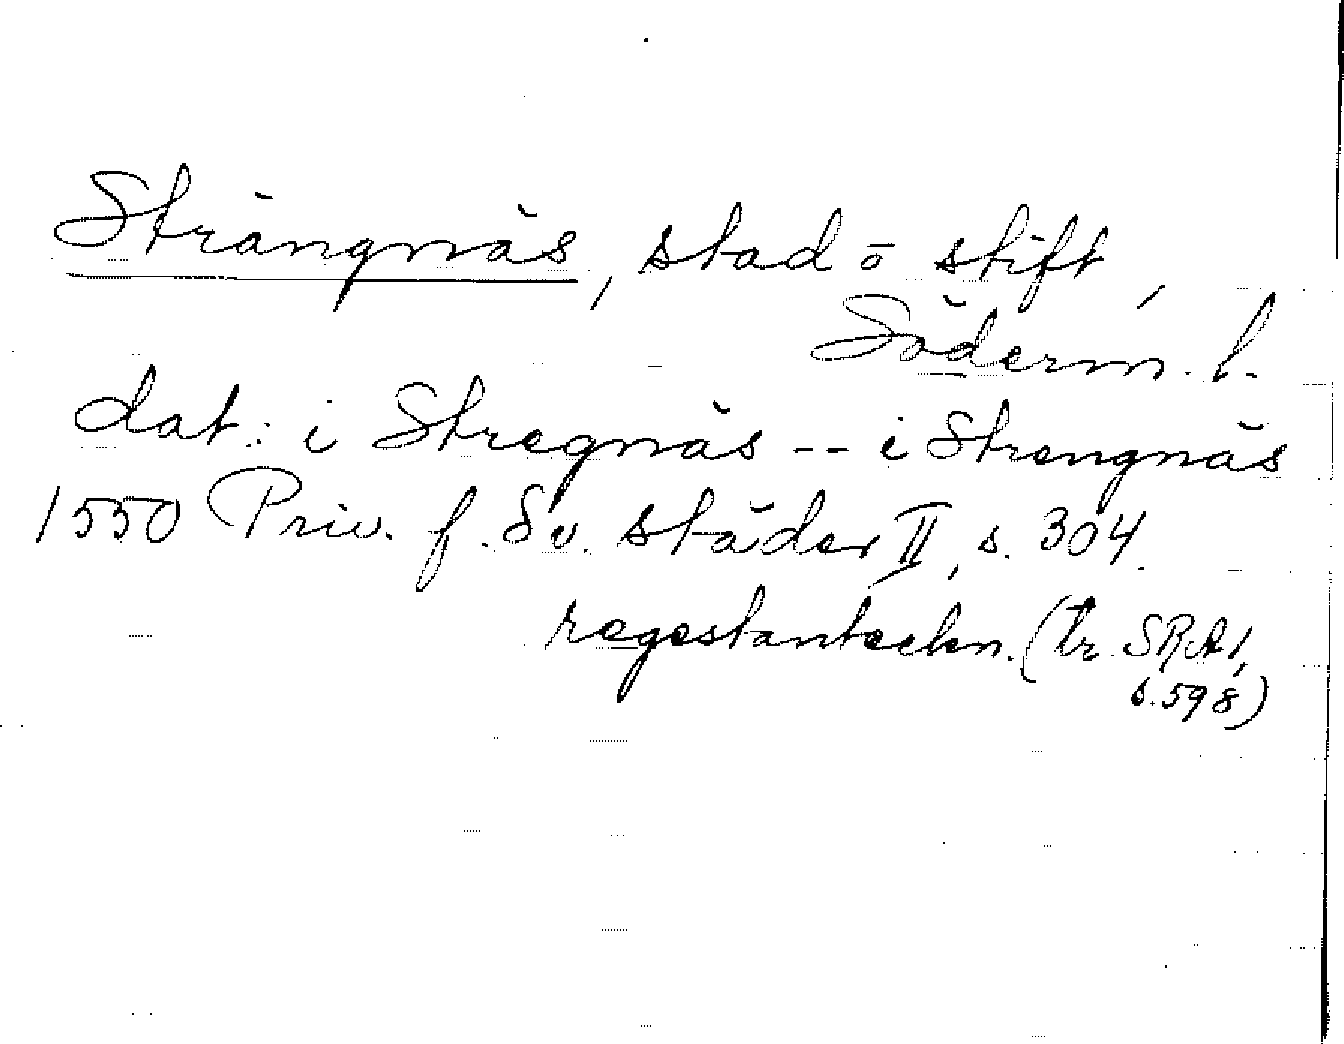 Strängnäs, stad o stift,
Söderm. l.
dat: i Stregnäs -- i Strengnäs
1550 Priv. f. Sv. städer II, s. 304.
regestanteckn. (Tr. SRA 1,
s. 598)